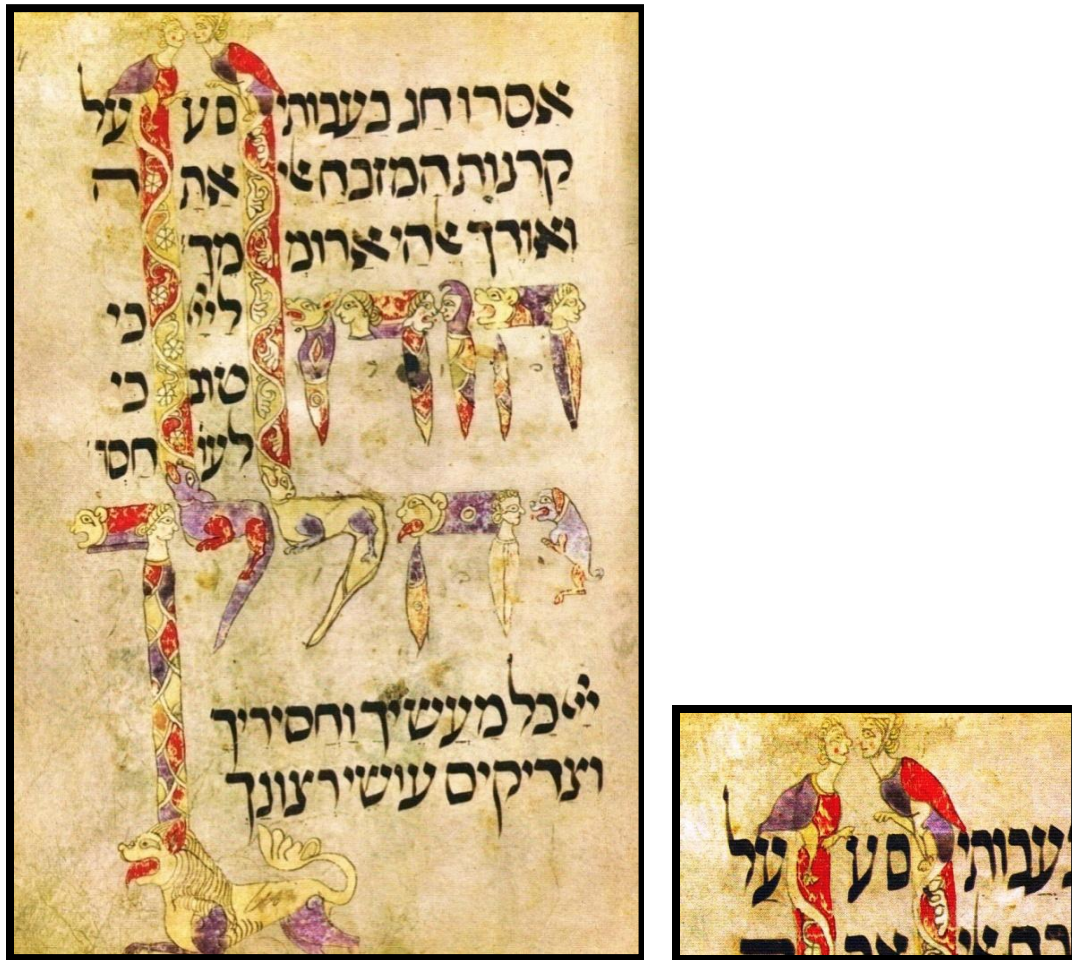 אסרו חג בעבותים ע על
קרנות המזבח אלי אתה
ואודך אלהי ארוממך
הודו ליי כי
טוב כי
לעו חסד'
יהללוך
יי כל מעשיך וחסידיך
וצדיקים עושי רצונך
בעבותים ע על